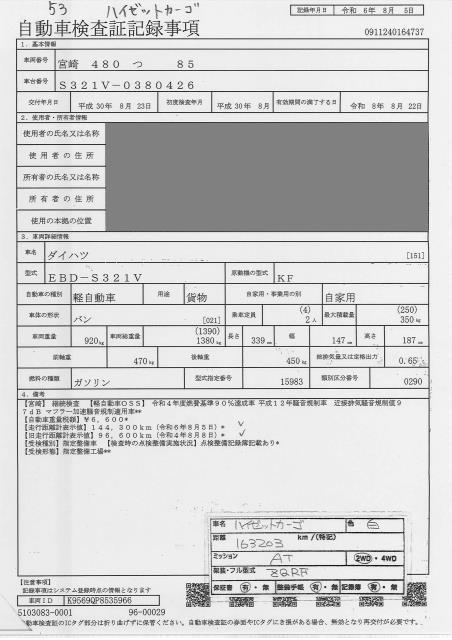 53 ハイゼットカーゴ
記録年月日 令和 6年 8月 5日
自動車検査証記録事項 0911240164737
1. 基本情報
車両番号 宮崎 480 つ 85
車台番号 S321V-0380426
交付年月日 平成 30年 8月 23日 初度検査年月 平成 30年 8月 有効期間の満了する日 令和 8年 8月 22日
2. 使用者・所有者情報
使用者の氏名又は名称
使用者の住所
所有者の氏名又は名称
所有者の住所
使用の本拠の位置
3. 車両詳細情報
車名 ダイハツ [151]
型式 EBD-S321V 原動機の型式 KF
自動車の種別 軽自動車 用途 貨物 自家用・事業用の別 自家用
車体の形状 バン [021] 乗車定員 (4) 2人 最大積載量 (250) 350kg
車両重量 920kg 車両総重量 (1390) 1380kg 長さ 339cm 幅 147cm 高さ 187cm
前軸重 470kg 後軸重 450kg 総排気量又は定格出力 0.65
燃料の種類 ガソリン 型式指定番号 15983 類別区分番号 0290
4. 備考
【宮崎】 継続検査 【軽自動車OSS】 令和4年度燃費基準90%達成車 平成12年騒音規制車 近接排気騒音規制値9
7dB マフラー加速騒音規制適用車**
【自動車重量税額】¥6,600*
【走行距離計表示値】144,300km(令和6年8月5日)*
【旧走行距離計表示値】96,600km(令和4年8月8日)*
【受検種別】指定整備車 【検査時の点検整備実施状況】点検整備記録簿記載あり*
【受検形態】指定整備工場**
車名 ハイゼットカーゴ 色 白
距離 163203 km/(特記)
ミッション AT 2WD・4WD
装備・フル型式
保証書 有・無 整備手帳 有・無 記録簿 有・無
【注意事項】
記録事項はシステム登録時点の情報となります
車両ID K9569QP8535966
5103083-0001 96-00029
自動車検査証のICタグ部分は折り曲げずに保管ください。自動車検査証の券面やICタグにき損がある場合、無効となり再交付が必要です。